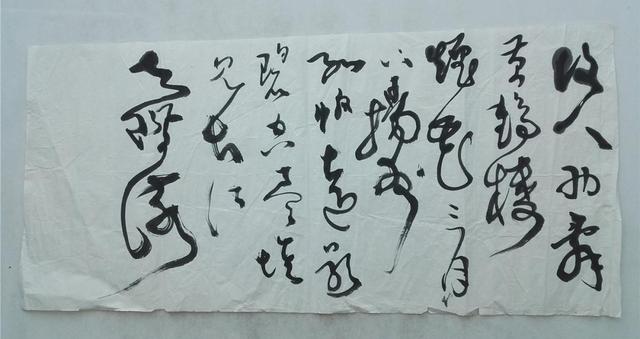 故人西辭
黄鶴樓
煙花三月
下揚州
孤帆遠影
碧空盡唯
見長江
天際流